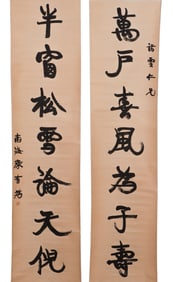 諭雲仁兄
萬戶春風為子壽
半窗松雪論天倪
南海康有為